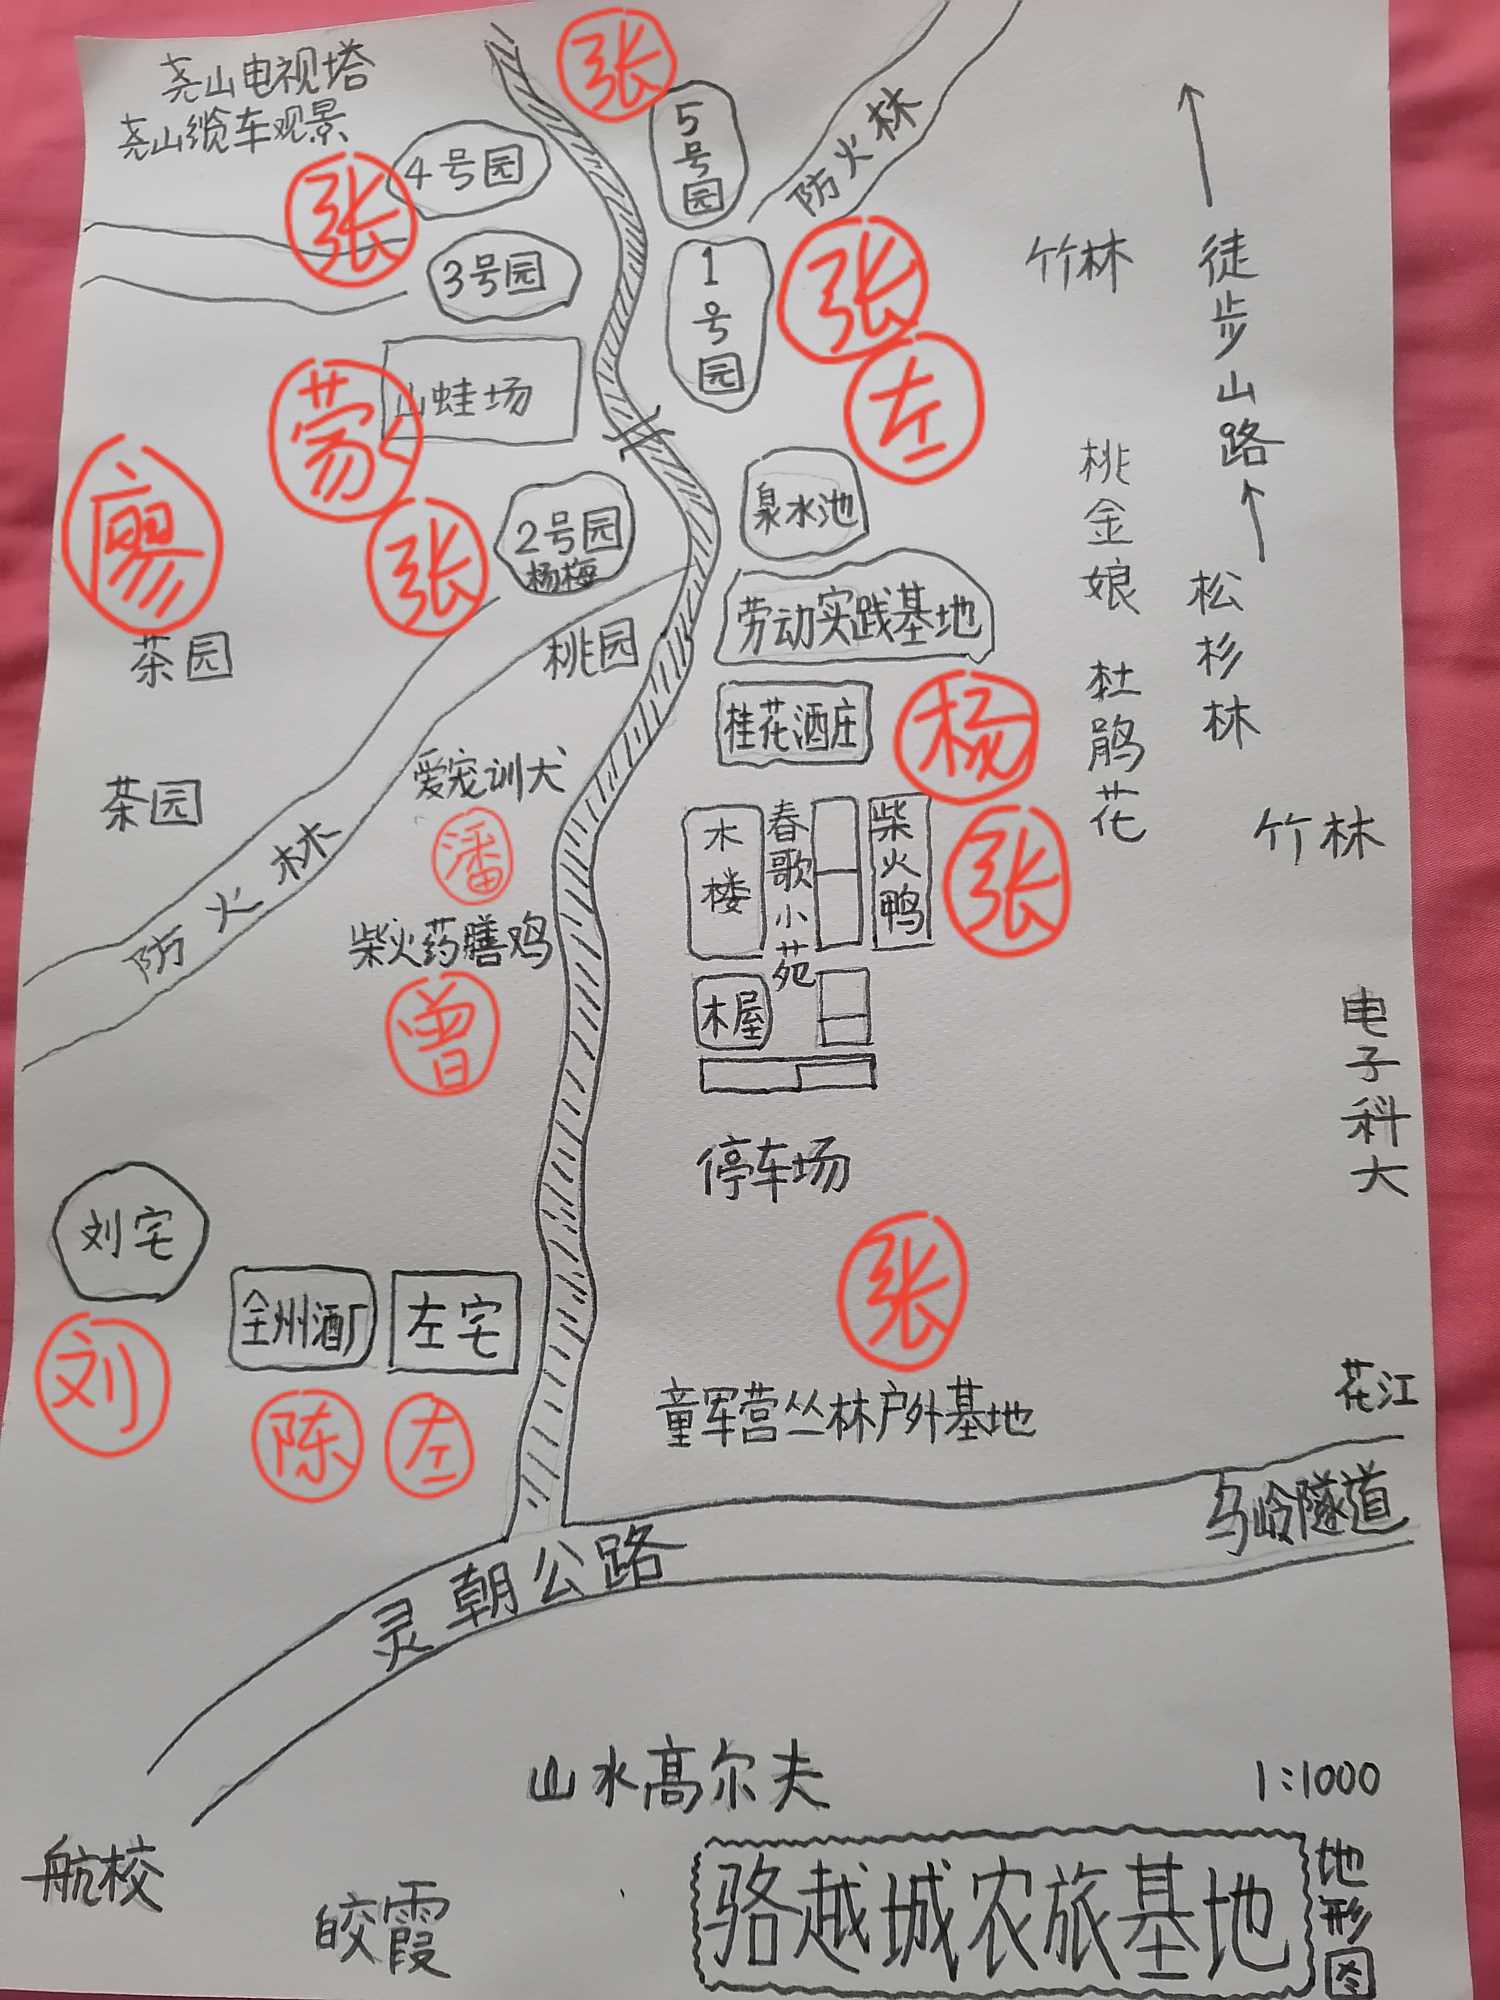 尧山电视塔
尧山缆车观景
张
5号园
防火林
4号园
张
3号园
1号园
张
左
竹林
徒步山路
山蛙场
蒙
廖
张
2号园
杨梅
泉水池
劳动实践基地
桃金娘 杜鹃花
松杉林
茶园
桃园
桂花酒庄
杨
茶园
爱宠训犬
潘
防火林
木楼
春歌小苑
柴火鸭
张
竹林
柴火药膳鸡
曾
木屋
电子科大
停车场
刘宅
刘
全州酒厂
陈
左宅
左
张
童军营丛林户外基地
花江
乌岭隧道
灵朝公路
山水高尔夫
1:1000
航校
皎霞
骆越城农旅基地
地形图